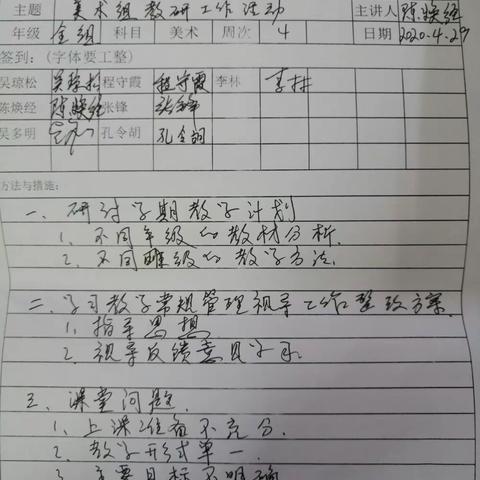 主题 美术组教研工作活动 主讲人 陈焕经
年级 全组 科目 美术 周次 4 日期 2020.4.29
签到：(字体要工整)
吴琼松 吴琼松 程守霞 程守霞 李林 李林
陈焕经 陈焕经 张锋 张锋
吴多明 孔令胡 孔令胡
方法与措施：
一、研讨学期教学计划
1、不同年级的教材分析.
2、不同班级的教学方法.
二、学习教学常规管理视导工作整改方案.
1、指导思想
2、视导反馈意见学习.
三、课堂问题.
1、上课准备不充分.
2、教学形式单一.
3、主要目标不明确